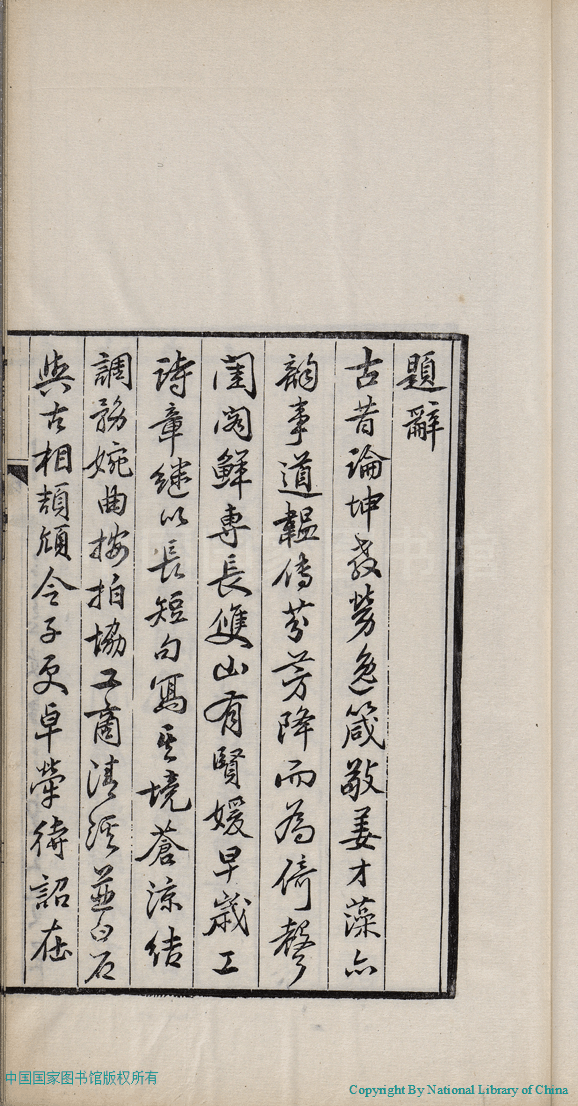 題辭
古昔論坤教勞逸箴敬姜才藻亦
韵事道韞傳芬芳降而為倚聲
閨閤鮮專長雙山有賢媛早歲工
詩章繼以長短句寫其境蒼涼結
調務婉曲按拍協工商清溪並白石
與古相頡頏令子更卓犖待詔在
中国国家图书馆版权所有
Copyright By National Library of China